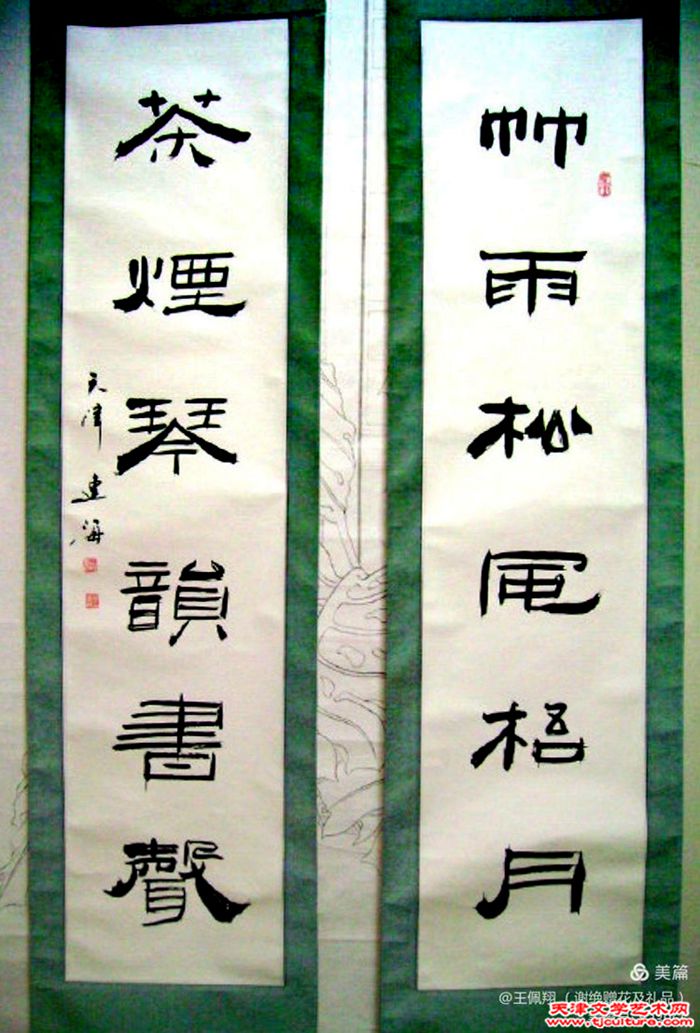 竹雨松風梧月
茶煙琴韻書聲
天津建海
美篇
@王佩翔（谢绝赠花及礼品）
天津文学艺术网
www.tjculture.com